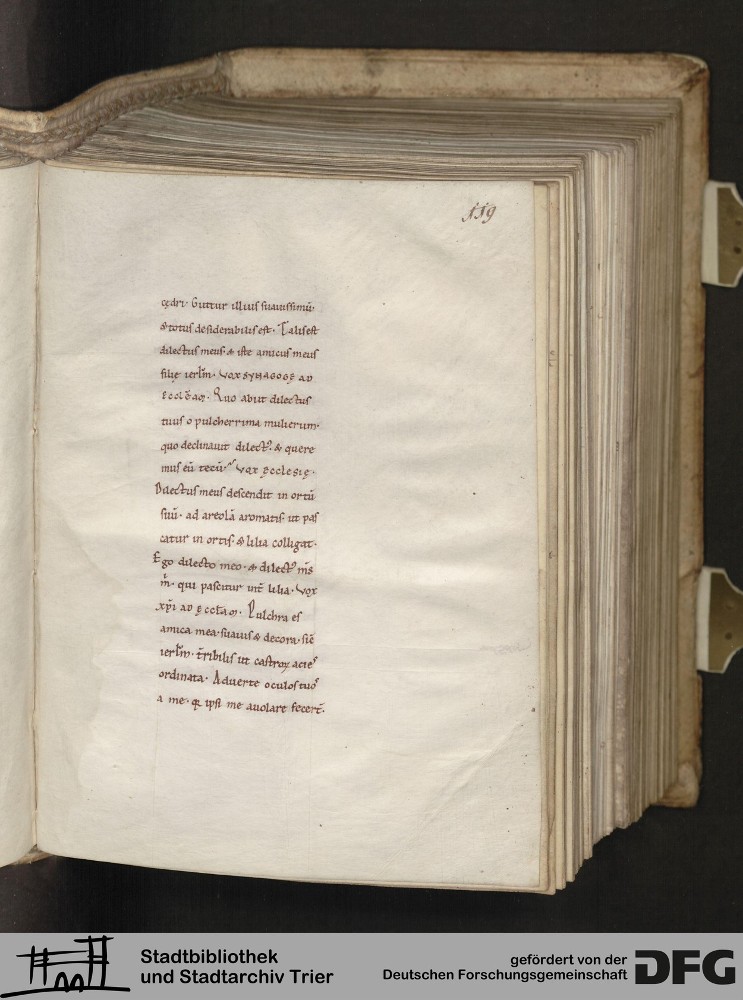 119
cędri· Guttur illius suauissimū·
& totus desiderabilis est· Talis est
dilectus meus· & iste amicus meus
filię ierłm· VOX SYNAGOGĘ AD
ĘCCLĒAM· Quo abiit dilectus
tuus o pulcherrima mulierum·
quo declinauit dilectꝰ· & quere
mus eū tecū· VOX ĘCCLESIĘ·
Dilectus meus descendit in ortū
suū· ad areolā aromatis· ut pas
catur in ortis· & lilia colligat·
Ego dilecto meo· & dilectꝰ m̄s
m̄· qui pascitur int̄ lilia· VOX
XP̄I AD ĘCCŁAM· Pulchra es
amica mea· suauis & decora· sic̄
ierłm· t̄ribilis ut castroꝝ acies
ordinata· Aduerte oculos tuos
a me· qꝛ ipsi me auolare fecert̄·
Stadtbibliothek
und Stadtarchiv Trier
gefördert von der
Deutschen Forschungsgemeinschaft
DFG